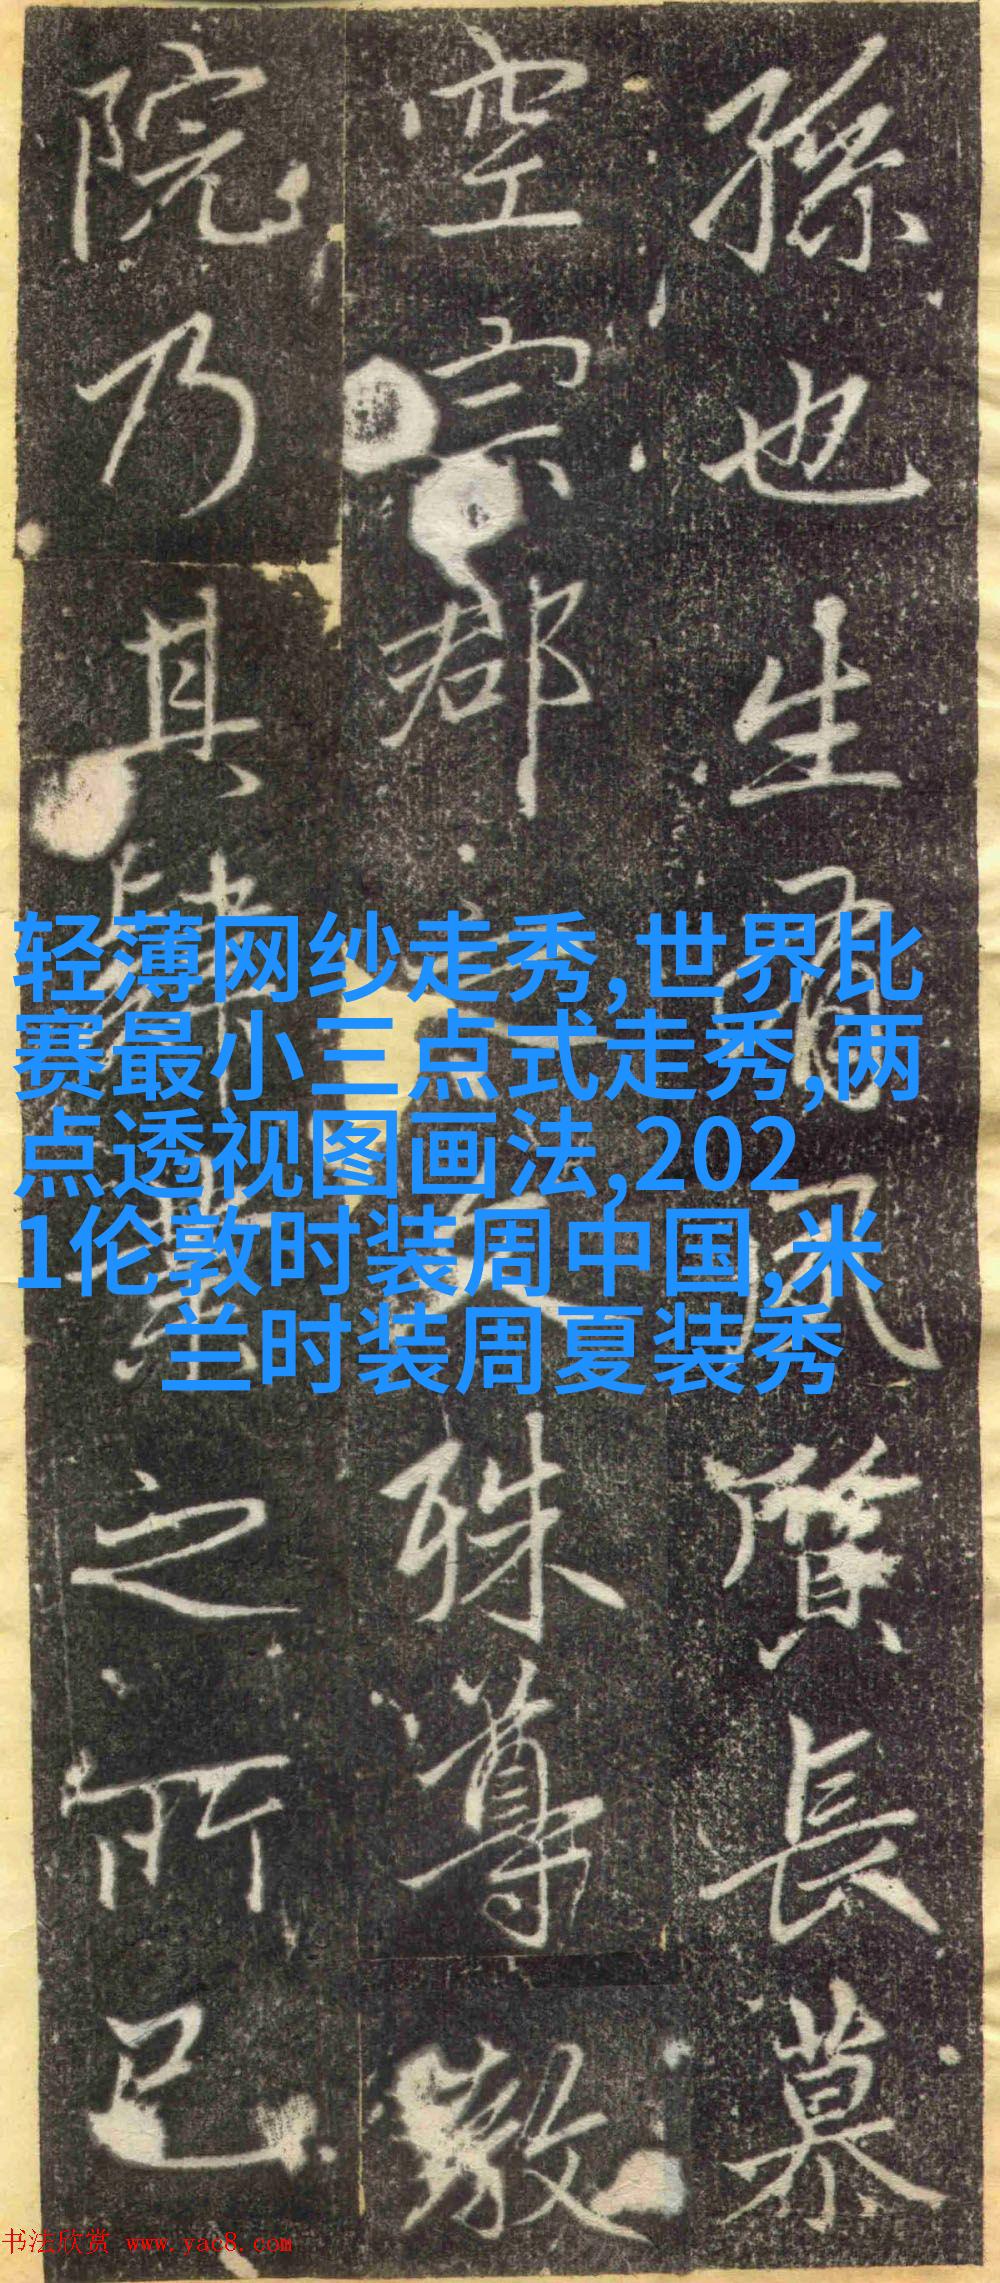 孫也生質長慕
空宗郡之殊尊教
院乃其肄業之所已
轻薄网纱走秀,世界比
赛最小三点式走秀,两
点透视图画法,202
1伦敦时装周中国,米
兰时装周夏装秀
书法欣赏 www.yac8.com